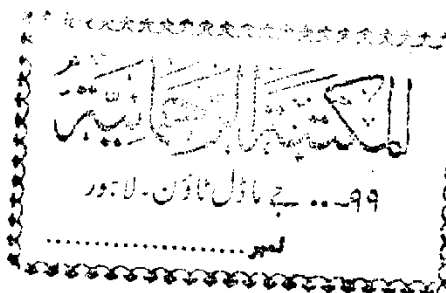 المكتبة الرحمانية
۹۹... جے ماڈل ٹاؤن۔ لاہور
نمبر......................